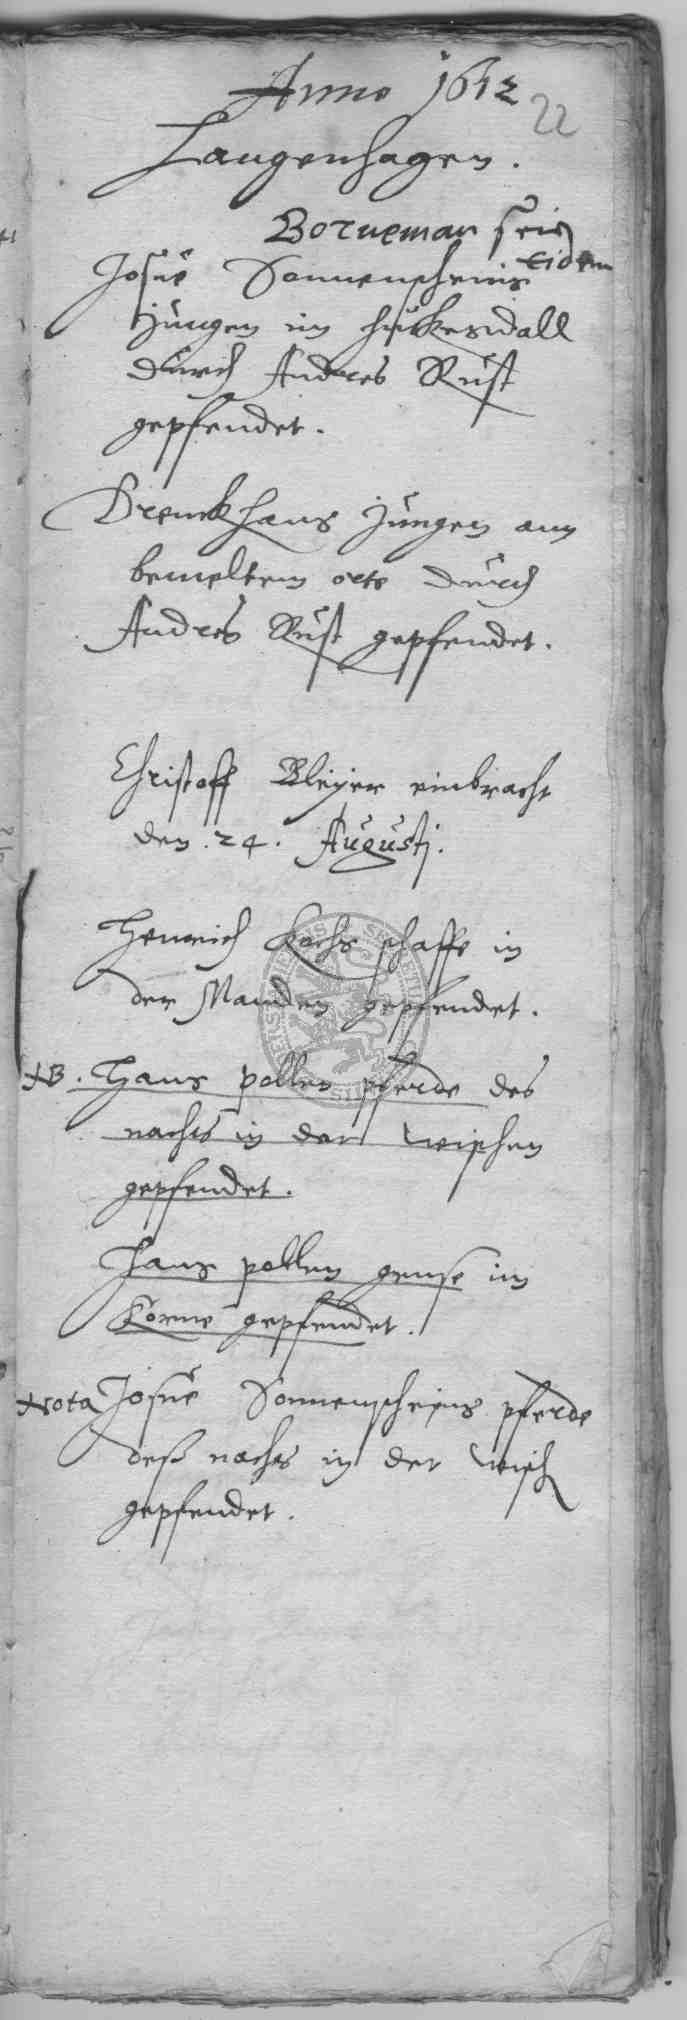 Anno 1612
22
Langenhagen.
Borneman sein
Eidem
Josuê Sonnenscheins
Jungen im
durch Andres Rust
gepfendet.
Drenckhans Jungen am
bemeltem orte durch
Andres Rust gepfendet.
Christoff Meÿer einbracht
den .24. Augustj.
Henrich Kochs schaffe in
der Manden gepfendet.
NB. Hans pollen pferde des
nachts in der wischen
gepfendet.
Hans pollen gense im
Korne gepfendet.
Nota Josuê Sonnenscheins pferde
deß nachts in der wisch
gepfendet.